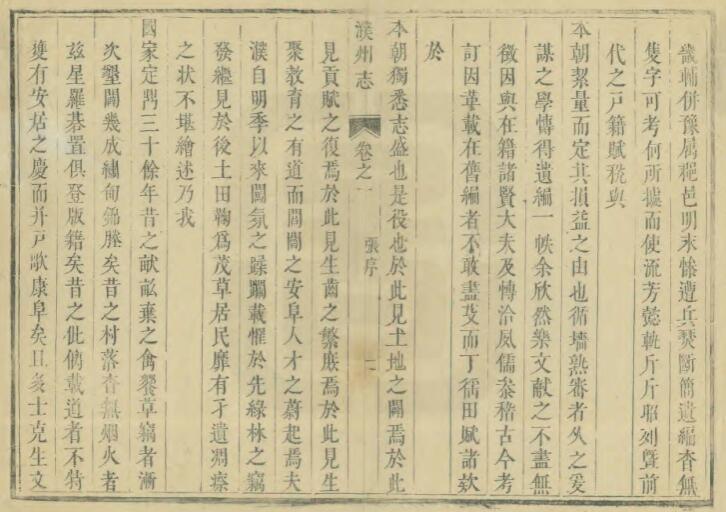 畿輔併豫属疤邑明末慘遭兵燹斷簡遺編杳無
隻字可考何所據而使流芳懿軌斤斤昭列暨前
代之戸籍賦稅與
本朝絜量而定其損益之由也循墻熟審者久之爰
謀之學愽得遺編一帙余欣然樂文献之不盡無
徵因與在籍諸賢大夫及愽洽夙儒叅稽古今考
訂因革載在舊編者不敢盡芟而丁徭田賦諸欵
於
本朝獨悉志盛也是役也於此見土地之闢焉於此
濮州志 卷之一 張序 二
見貢賦之復焉於此見生齒之繁庶焉於此見生
聚教育之有道而閭閻之安阜人才之蔚起焉夫
濮自明季以來闖氛之蹂躙載罹於先綠林之竊
發繼見於後土田鞠爲茂草居民靡有孑遺凋瘵
之状不堪繪述乃我
國家定鼎三十餘年昔之献畝棄之禽獸草竊者漸
次墾闢幾成繡甸錦塍矣昔之村落杳無烟火者
玆星羅碁置俱登版籍矣昔之仳俻載道者不特
㨿有安居之慶而并戸歌康阜矣且多士克生文